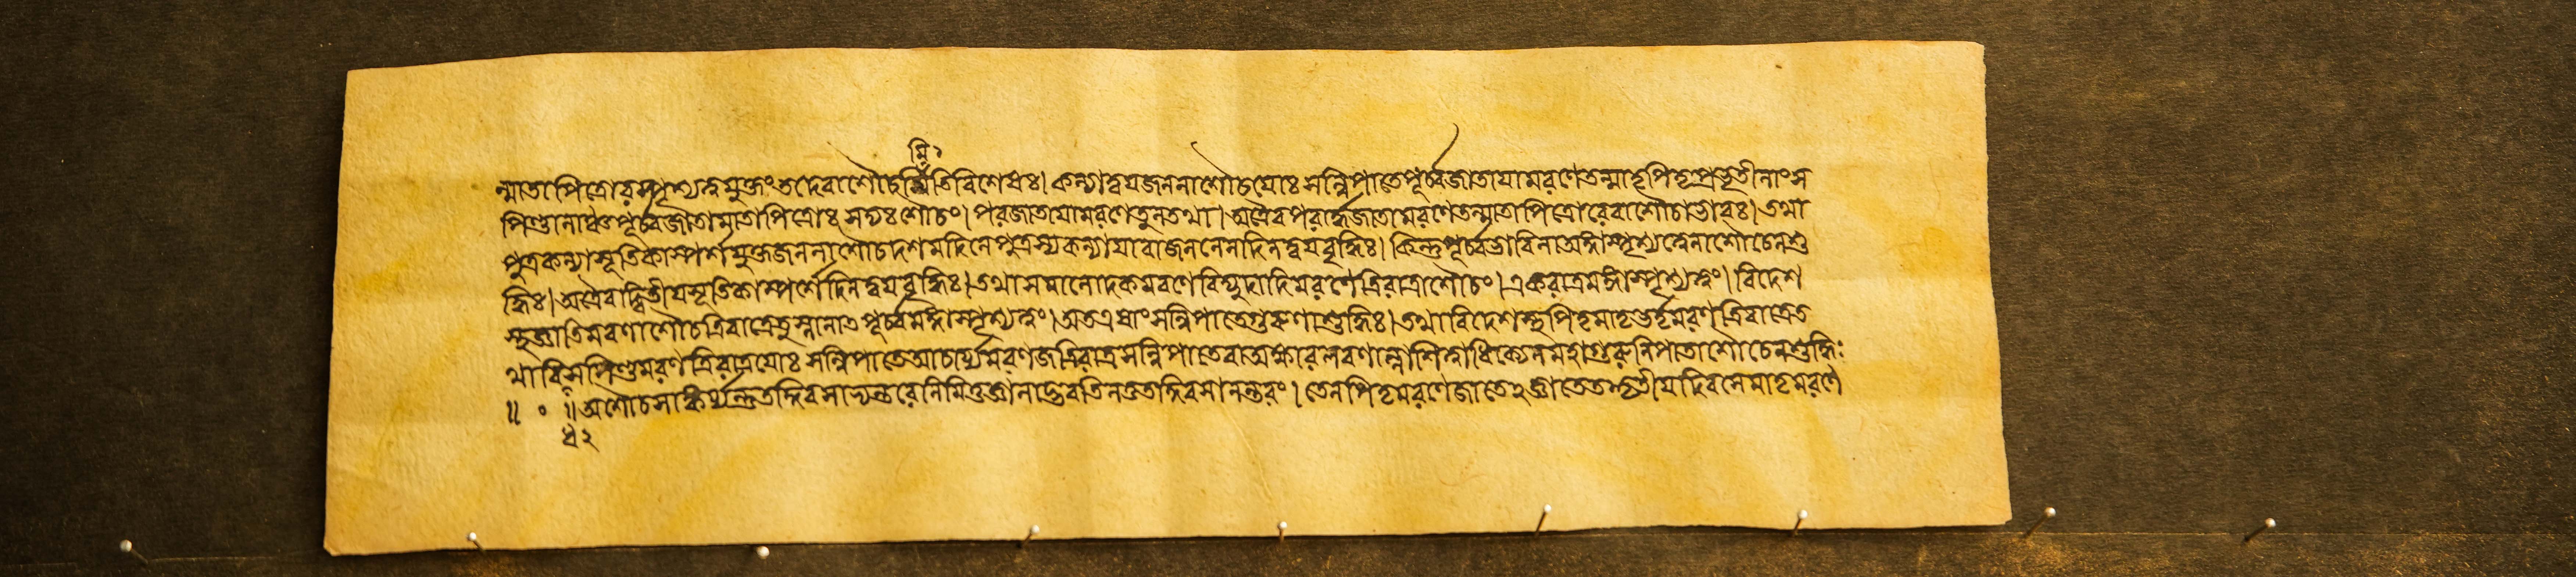 ন্মাতাপিত্রোরস্পৃশ্যত্বযুক্তং তদেবাশৌচমিতিবিশেষঃ। কন্যাদ্বয়জননাশৌচয়োঃ সন্নিপাতেপূর্ব্বজাতায়ামরণেতন্মাতৃপিতৃপ্রভৃতীনাংস
পিণ্ডানাঞ্চপূর্ব্বজাতামাতাপিত্রোঃ সদ্যঃশৌচং। পরজাতায়ামরণেতুনতথা। অত্রৈবপরার্দ্ধজাতামরণেতন্মাতাপিত্রোরেবাশৌচাভাবঃ। তথা
পুত্রকন্যাসূতিকাস্পর্শযুক্তজননাশৌচদশমদিনেপুত্রস্যকন্যায়াবাজননেনদিনদ্বয়বৃদ্ধিঃ। কিন্তুপূর্ব্বভাবিনাঅঙ্গাস্পৃশ্যত্বেনাশৌচেনশু
দ্ধিঃ। অত্রৈবদ্বিতীয়সূতিকাস্পর্শেদিনদ্বয়বৃদ্ধিঃ। তথাসমানোদকমরণেবিদ্যুদাদিমরণেত্রিরাত্রাশৌচং। একরাত্রমঙ্গাস্পৃশ্যত্বং। বিদেশ
স্থজ্ঞাতিমরণাশৌচত্রিরাত্রেতুস্নানাত্ পূর্ব্বমঙ্গাস্পৃশ্যত্বং। অতএষাংসন্নিপাতেগুরুণাশুদ্ধিঃ। তথাবিদেশস্থপিতৃমাতৃভর্তৃমরণত্রিরাত্রেত
থাবিধসপিণ্ডমরণত্রিরাত্রয়োঃ সন্নিপাতেআচার্য্যমরণজত্রিরাত্রসন্নিপাতেবাঅক্ষারলবণান্নাশিত্বাধিক্যেনমহাগুরুনিপাতাশৌচেনশুদ্ধিঃ
॥ ॰ ॥ অশৌচসাঙ্কর্য্যন্তুতদ্দিবসাভ্যন্তরেনিমিত্তজ্ঞানাদ্ভবতিনতুতদ্দিবসানন্তরং। তেনপিতৃমরণেজাতেঽজ্ঞাতেতত্তৃতীয়দিবসেমাতৃমরণে